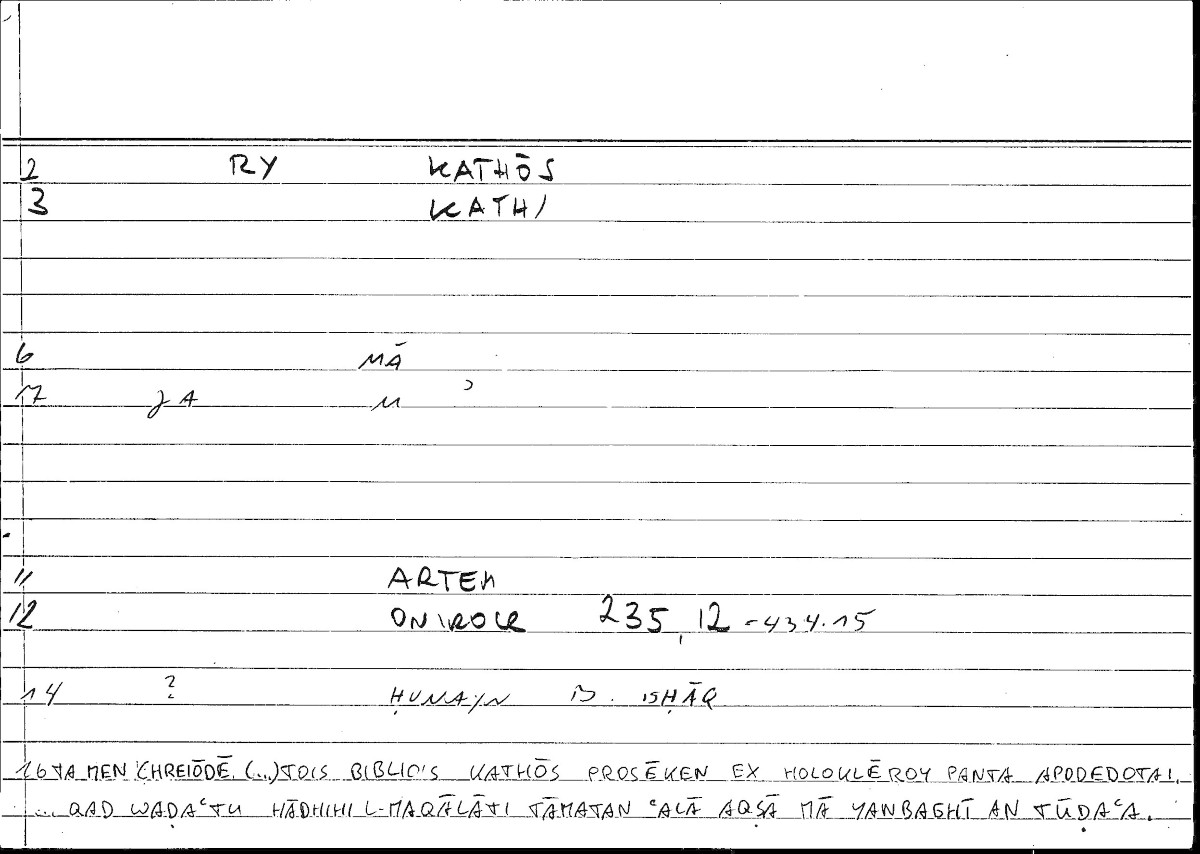 2 RY KATHŌS
3 KATH/
6 MĀ
17 JA M
11 ARTEM
12 ONIROCR 235,12 - 434.15
14 ? ḤUNAYN B. ISḤĀQ
16 TA MEN CHREIŌDĒ (...) TOIS BIBLIOIS KATHŌS PROSĒKEN EX HOLOKLĒROY PANTA APODEDOTAI.
... QAD WAḌAʿTU HĀDHIHI L-MAQĀLĀTI TĀMATAN ʿALĀ AQṢĀ MĀ YANBAGHĪ AN TŪḌAʿA.